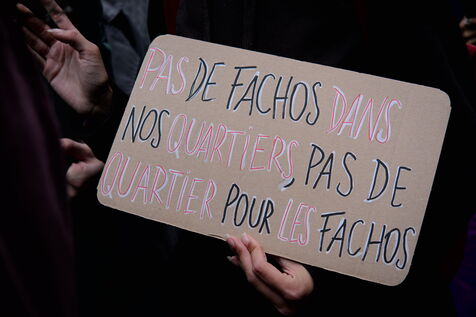 PAS DE FACHOS DANS
NOS QUARTIERS, PAS DE
QUARTIER POUR LES FACHOS